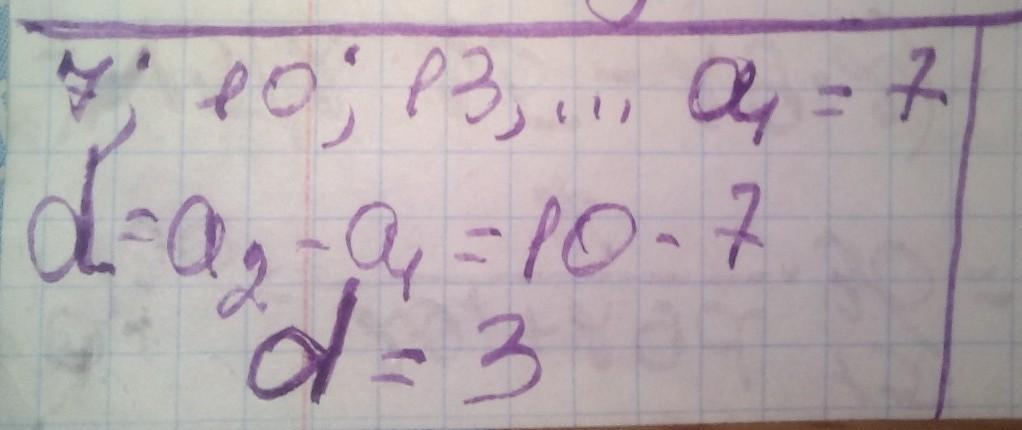 7; 10; 13, ... a₁ = 7
d = a₂ - a₁ = 10 - 7
d = 3